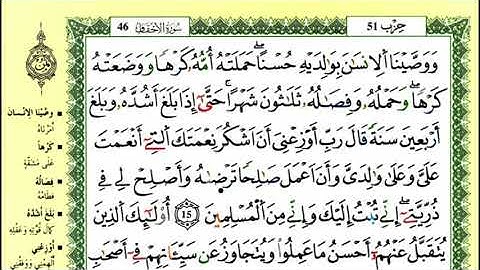 حِزْب 51
سُورَةُ الأَحْقَاف 46
وَوَصَّيْنَا اَ۬لِانسَٰنَ بِوَٰلِدَيْهِ حُسْناًۖ حَمَلَتْهُ أُمُّهُۥ كَرْهاً وَوَضَعَتْهُ
كَرْهاًۖ وَحَمْلُهُۥ وَفِصَٰلُهُۥ ثَلَٰثُونَ شَهْراًۖ حَتَّىٰٓ إِذَا بَلَغَ أَشُدَّهُۥ وَبَلَغَ
أَرْبَعِينَ سَنَةً قَالَ رَبِّ أَوْزِعْنِيَ أَنَ اَشْكُرَ نِعْمَتَكَ اَ۬لتِےٓ أَنْعَمْتَ
عَلَيَّ وَعَلَىٰ وَٰلِدَيَّ وَأَنَ اَعْمَلَ صَٰلِحاً تَرْضَىٰهُ وَأَصْلِحْ لِے فِے
ذُرِّيَّتِيَۖ إِنِّے تُبْتُ إِلَيْكَ وَإِنِّے مِنَ اَ۬لْمُسْلِمِينَ 15 أُوْلَٰٓئِكَ اَ۬لذِينَ
يُتَقَبَّلُ عَنْهُمُۥٓ أَحْسَنُ مَا عَمِلُواْ وَيُتَجَاوَزُ عَن سَيِّـَٔاتِهِمْ فِےٓ أَصْحَٰبِ
وَصَّيْنَا الإِنْسَانَ
أَمَرْنَاهُ
كَرْهاً
عَلَى مَشَقَّةٍ
فِصَالُهُ
فِطَامُهُ
بَلَغَ أَشُدَّهُ
كَمَالَ قُوَّتِهِ وَعَقْلِهِ
أَوْزِعْنِي
أَلْهِمْنِي وَوَفِّقْنِي